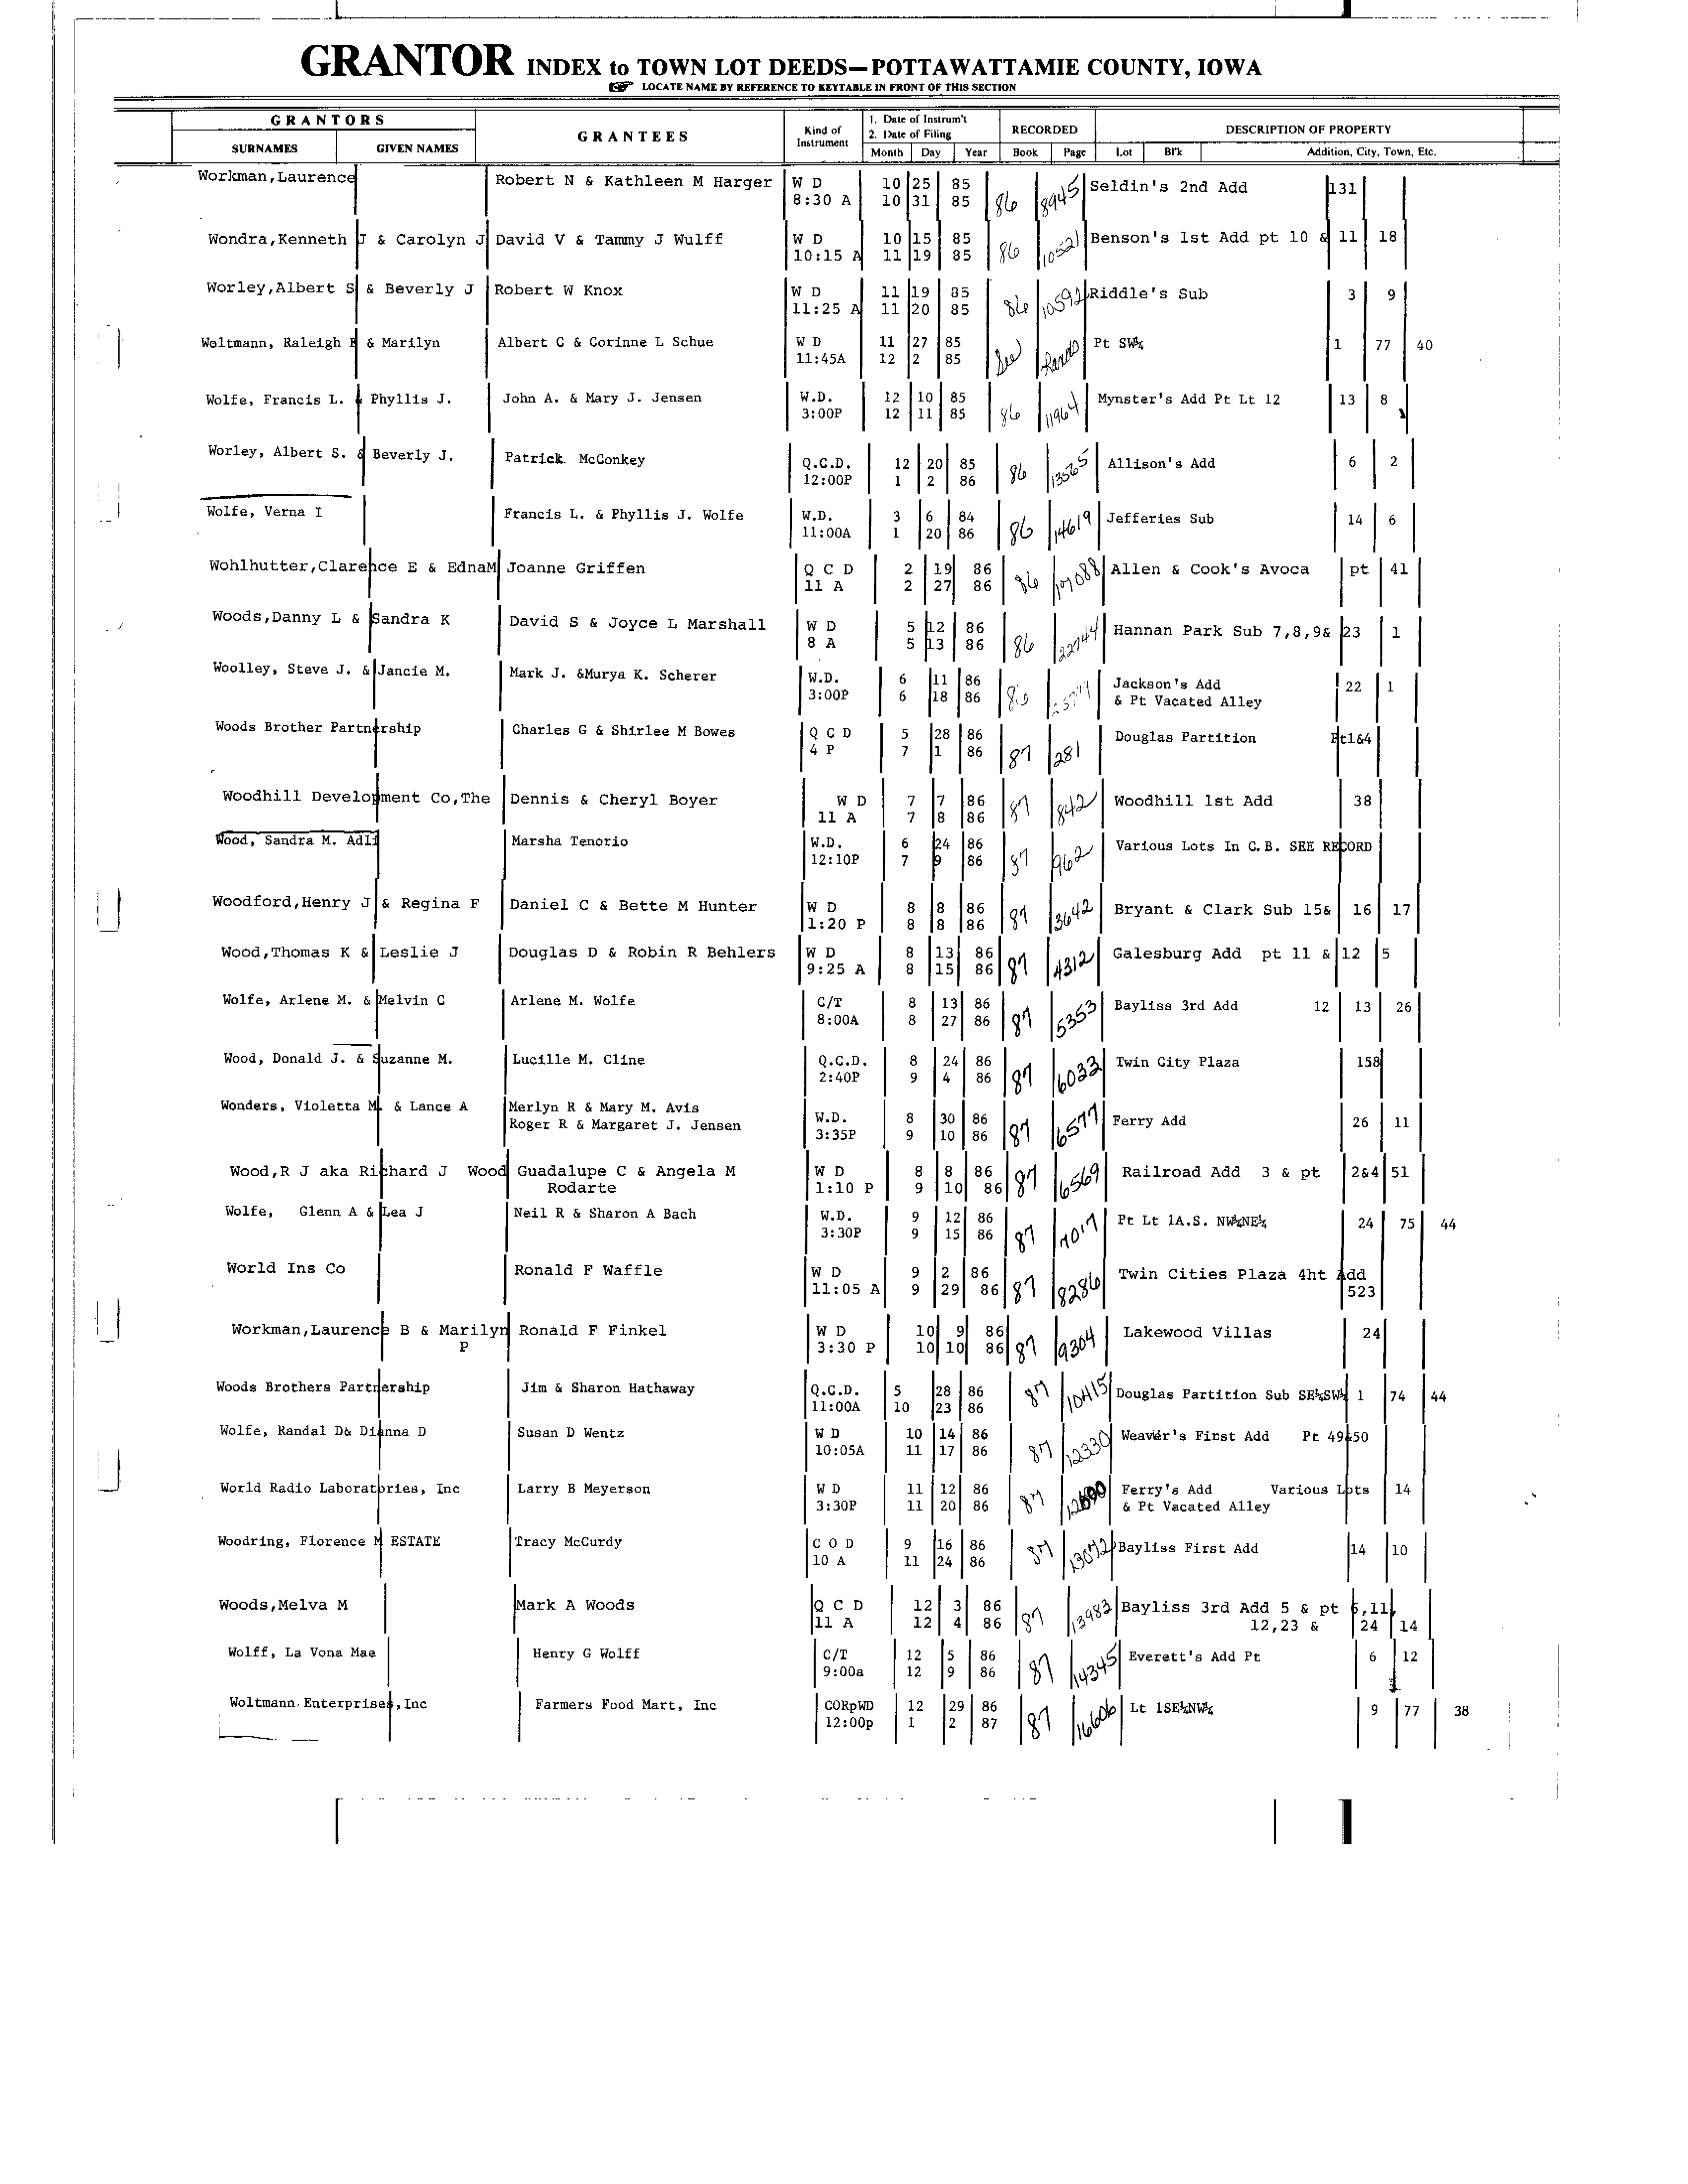 GRANTOR INDEX to TOWN LOT DEEDS—POTTAWATTAMIE COUNTY, IOWA
LOCATE NAME BY REFERENCE TO KEYTABLE IN FRONT OF THIS SECTION
GRANTORS GRANTEES Kind of Instrument 1. Date of Instrum't 2. Date of Filing RECORDED DESCRIPTION OF PROPERTY
SURNAMES GIVEN NAMES Month Day Year Book Page Lot Bl'k Addition, City, Town, Etc.
Workman,Laurence Robert N & Kathleen M Harger W D 10 25 85 86 8945 Seldin's 2nd Add 131
8:30 A 10 31 85
Wondra,Kenneth J & Carolyn J David V & Tammy J Wulff W D 10 15 85 86 10521 Benson's 1st Add pt 10 & 11 18
10:15 A 11 19 85
Worley,Albert S & Beverly J Robert W Knox W D 11 19 85 86 10592 Riddle's Sub 3 9
11:25 A 11 20 85
Woltmann, Raleigh & Marilyn Albert C & Corinne L Schue W D 11 27 85 See Pt SW¼ 1 77 40
11:45A 12 2 85
Wolfe, Francis L. & Phyllis J. John A. & Mary J. Jensen W.D. 12 10 85 86 11964 Mynster's Add Pt Lt 12 13 8
3:00P 12 11 85
Worley, Albert S. & Beverly J. Patrick McConkey Q.C.D. 12 20 85 86 13565 Allison's Add 6 2
12:00P 1 2 86
Wolfe, Verna I Francis L. & Phyllis J. Wolfe W.D. 3 6 84 86 14619 Jefferies Sub 14 6
11:00A 1 20 86
Wohlhutter,Clarence E & EdnaM Joanne Griffen Q C D 2 19 86 86 Allen & Cook's Avoca pt 41
11 A 2 27 86
Woods,Danny L & Sandra K David S & Joyce L Marshall W D 5 12 86 86 22744 Hannan Park Sub 7,8,9& 23 1
8 A 5 13 86
Woolley, Steve J. & Jancie M. Mark J. &Murya K. Scherer W.D. 6 11 86 86 Jackson's Add 22 1
3:00P 6 18 86 & Pt Vacated Alley
Woods Brother Partnership Charles G & Shirlee M Bowes Q C D 5 28 86 87 281 Douglas Partition Pt1&4
4 P 7 1 86
Woodhill Development Co,The Dennis & Cheryl Boyer W D 7 7 86 87 842 Woodhill 1st Add 38
11 A 7 8 86
Wood, Sandra M. Adli Marsha Tenorio W.D. 6 24 86 87 962 Various Lots In C.B. SEE RECORD
12:10P 7 9 86
Woodford,Henry J & Regina F Daniel C & Bette M Hunter W D 8 8 86 87 3642 Bryant & Clark Sub 15& 16 17
1:20 P 8 8 86
Wood,Thomas K & Leslie J Douglas D & Robin R Behlers W D 8 13 86 87 4312 Galesburg Add pt 11 & 12 5
9:25 A 8 15 86
Wolfe, Arlene M. & Melvin C Arlene M. Wolfe C/T 8 13 86 87 5353 Bayliss 3rd Add 12 13 26
8:00A 8 27 86
Wood, Donald J. & Suzanne M. Lucille M. Cline Q.C.D. 8 24 86 87 6033 Twin City Plaza 158
2:40P 9 4 86
Wonders, Violetta M. & Lance A Merlyn R & Mary M. Avis W.D. 8 30 86 87 6577 Ferry Add 26 11
Roger R & Margaret J. Jensen 3:35P 9 10 86
Wood,R J aka Richard J Wood Guadalupe C & Angela M W D 8 8 86 87 6569 Railroad Add 3 & pt 2&4 51
Rodarte 1:10 P 9 10 86
Wolfe, Glenn A & Lea J Neil R & Sharon A Bach W.D. 9 12 86 87 7017 Pt Lt 1A.S. NW¼NE¼ 24 75 44
3:30P 9 15 86
World Ins Co Ronald F Waffle W D 9 2 86 87 8286 Twin Cities Plaza 4ht Add
11:05 A 9 29 86 523
Workman,Laurence B & Marilyn Ronald F Finkel W D 10 9 86 87 9304 Lakewood Villas 24
P 3:30 P 10 10 86
Woods Brothers Partnership Jim & Sharon Hathaway Q.C.D. 5 28 86 87 10415 Douglas Partition Sub SE¼SW¼ 1 74 44
11:00A 10 23 86
Wolfe, Randal D& Dianna D Susan D Wentz W D 10 14 86 87 12330 Weaver's First Add Pt 49&50
10:05A 11 17 86
World Radio Laboratories, Inc Larry B Meyerson W D 11 12 86 87 Ferry's Add Various Lots 14
3:30P 11 20 86 & Pt Vacated Alley
Woodring, Florence M ESTATE Tracy McCurdy C O D 9 16 86 87 13072 Bayliss First Add 14 10
10 A 11 24 86
Woods,Melva M Mark A Woods Q C D 12 3 86 87 13982 Bayliss 3rd Add 5 & pt 6,11,
11 A 12 4 86 12,23 & 24 14
Wolff, La Vona Mae Henry G Wolff C/T 12 5 86 87 14345 Everett's Add Pt 6 12
9:00a 12 9 86
Woltmann Enterprises,Inc Farmers Food Mart, Inc CORpWD 12 29 86 87 16606 Lt 1SE¼NW¼ 9 77 38
12:00p 1 2 87